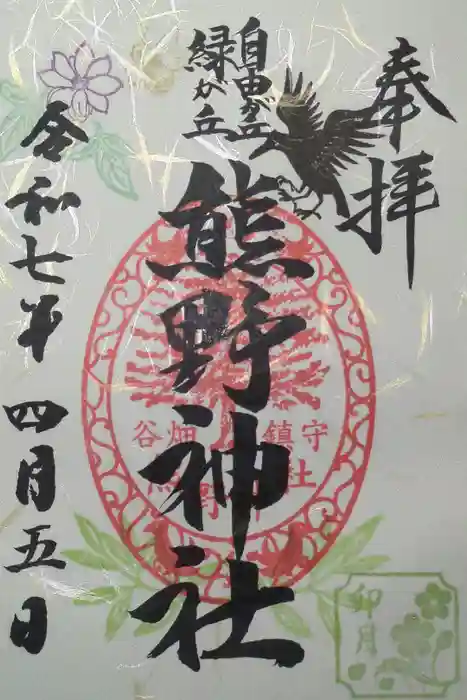 奉拝
自由が丘
緑が丘
熊野神社
谷畑 鎮守
熊野神社
卯月
令和七年
四月五日